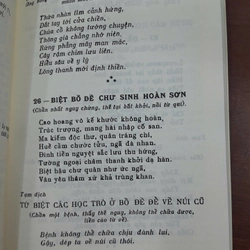 Thừa nhàn tìm cảnh hứng,
Dắt tay tới cửa chiền,
Chùa cổ không tường chuyện,
Thông già chẳng nhớ niên,
Rừng phẳng mây man mác,
Cây rậm chim lưu liên,
Hiểu sâu về ý lý
Lòng thanh mới định thiền.
26 — BIỆT BỒ ĐỀ CHƯ SINH HOÀN SƠN
(Chẩn nhất nguy chứng, thế tại bất khởi, nãi từ qui).
Cao hoang vô kế khước không hoàn,
Trúc trượng, mang hài nhập cố san.
Ma kiếm độc thư, quân tráng chí,
Huề cầm chước tửu, ngã dà nhan.
Đình tiền nguyệt sắc lưu thu hứng,
Tường ngoại châm thanh khởi dạ hàn.
Biệt hậu chư quân như ức ngã,
Vân yên thâm xứ khả trùng khan.
Tạm dịch
TỪ BIỆT CÁC HỌC TRÒ Ở BỒ ĐỀ ĐỂ VỀ NÚI CŨ
(Chẩn một bệnh, thấy thế nguy, không thể chữa được,
tiền cao từ về).
Bệnh không thể chữa chịu đành lui,
Gậy, dép ta về núi cũ thôi.